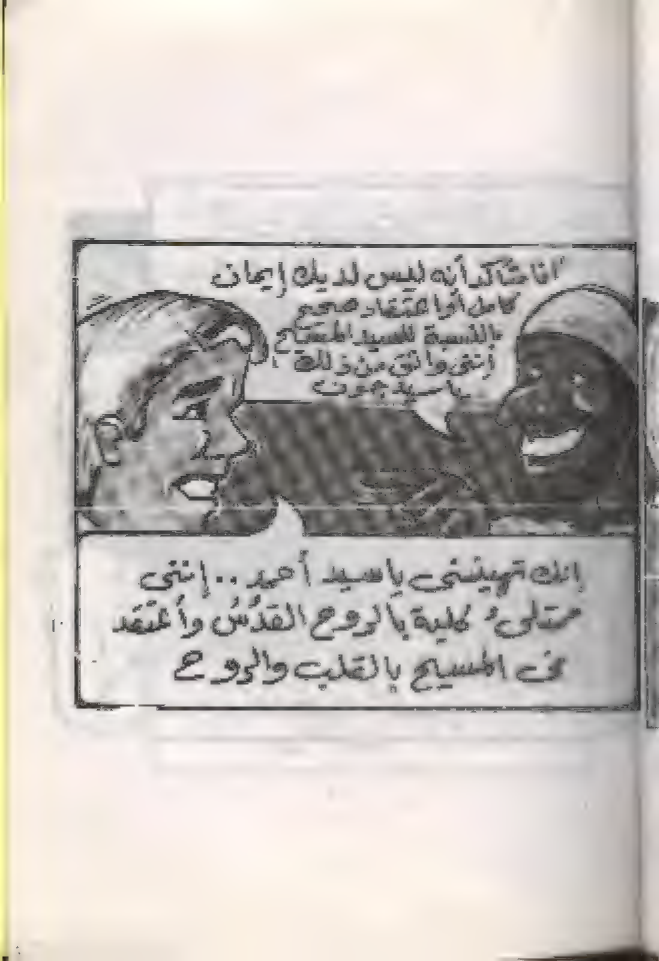 أنا متأكد أنه ليس لديك إيمان
كامل أو اعتقاد صحيح
بالنسبة للسيد المسيح
إننى واثق من ذلك
يا سيد جون
إنك تهيننى يا سيد أحمد .. إننى
ممتلىء كلية بالروح القدُسُ وأعتقد
فى المسيح بالقلب والروح